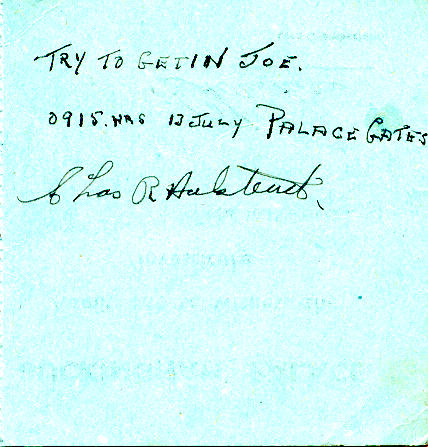 TRY TO GET IN JOE.
0915. HRS 13 JULY PALACE GATES
Chas R